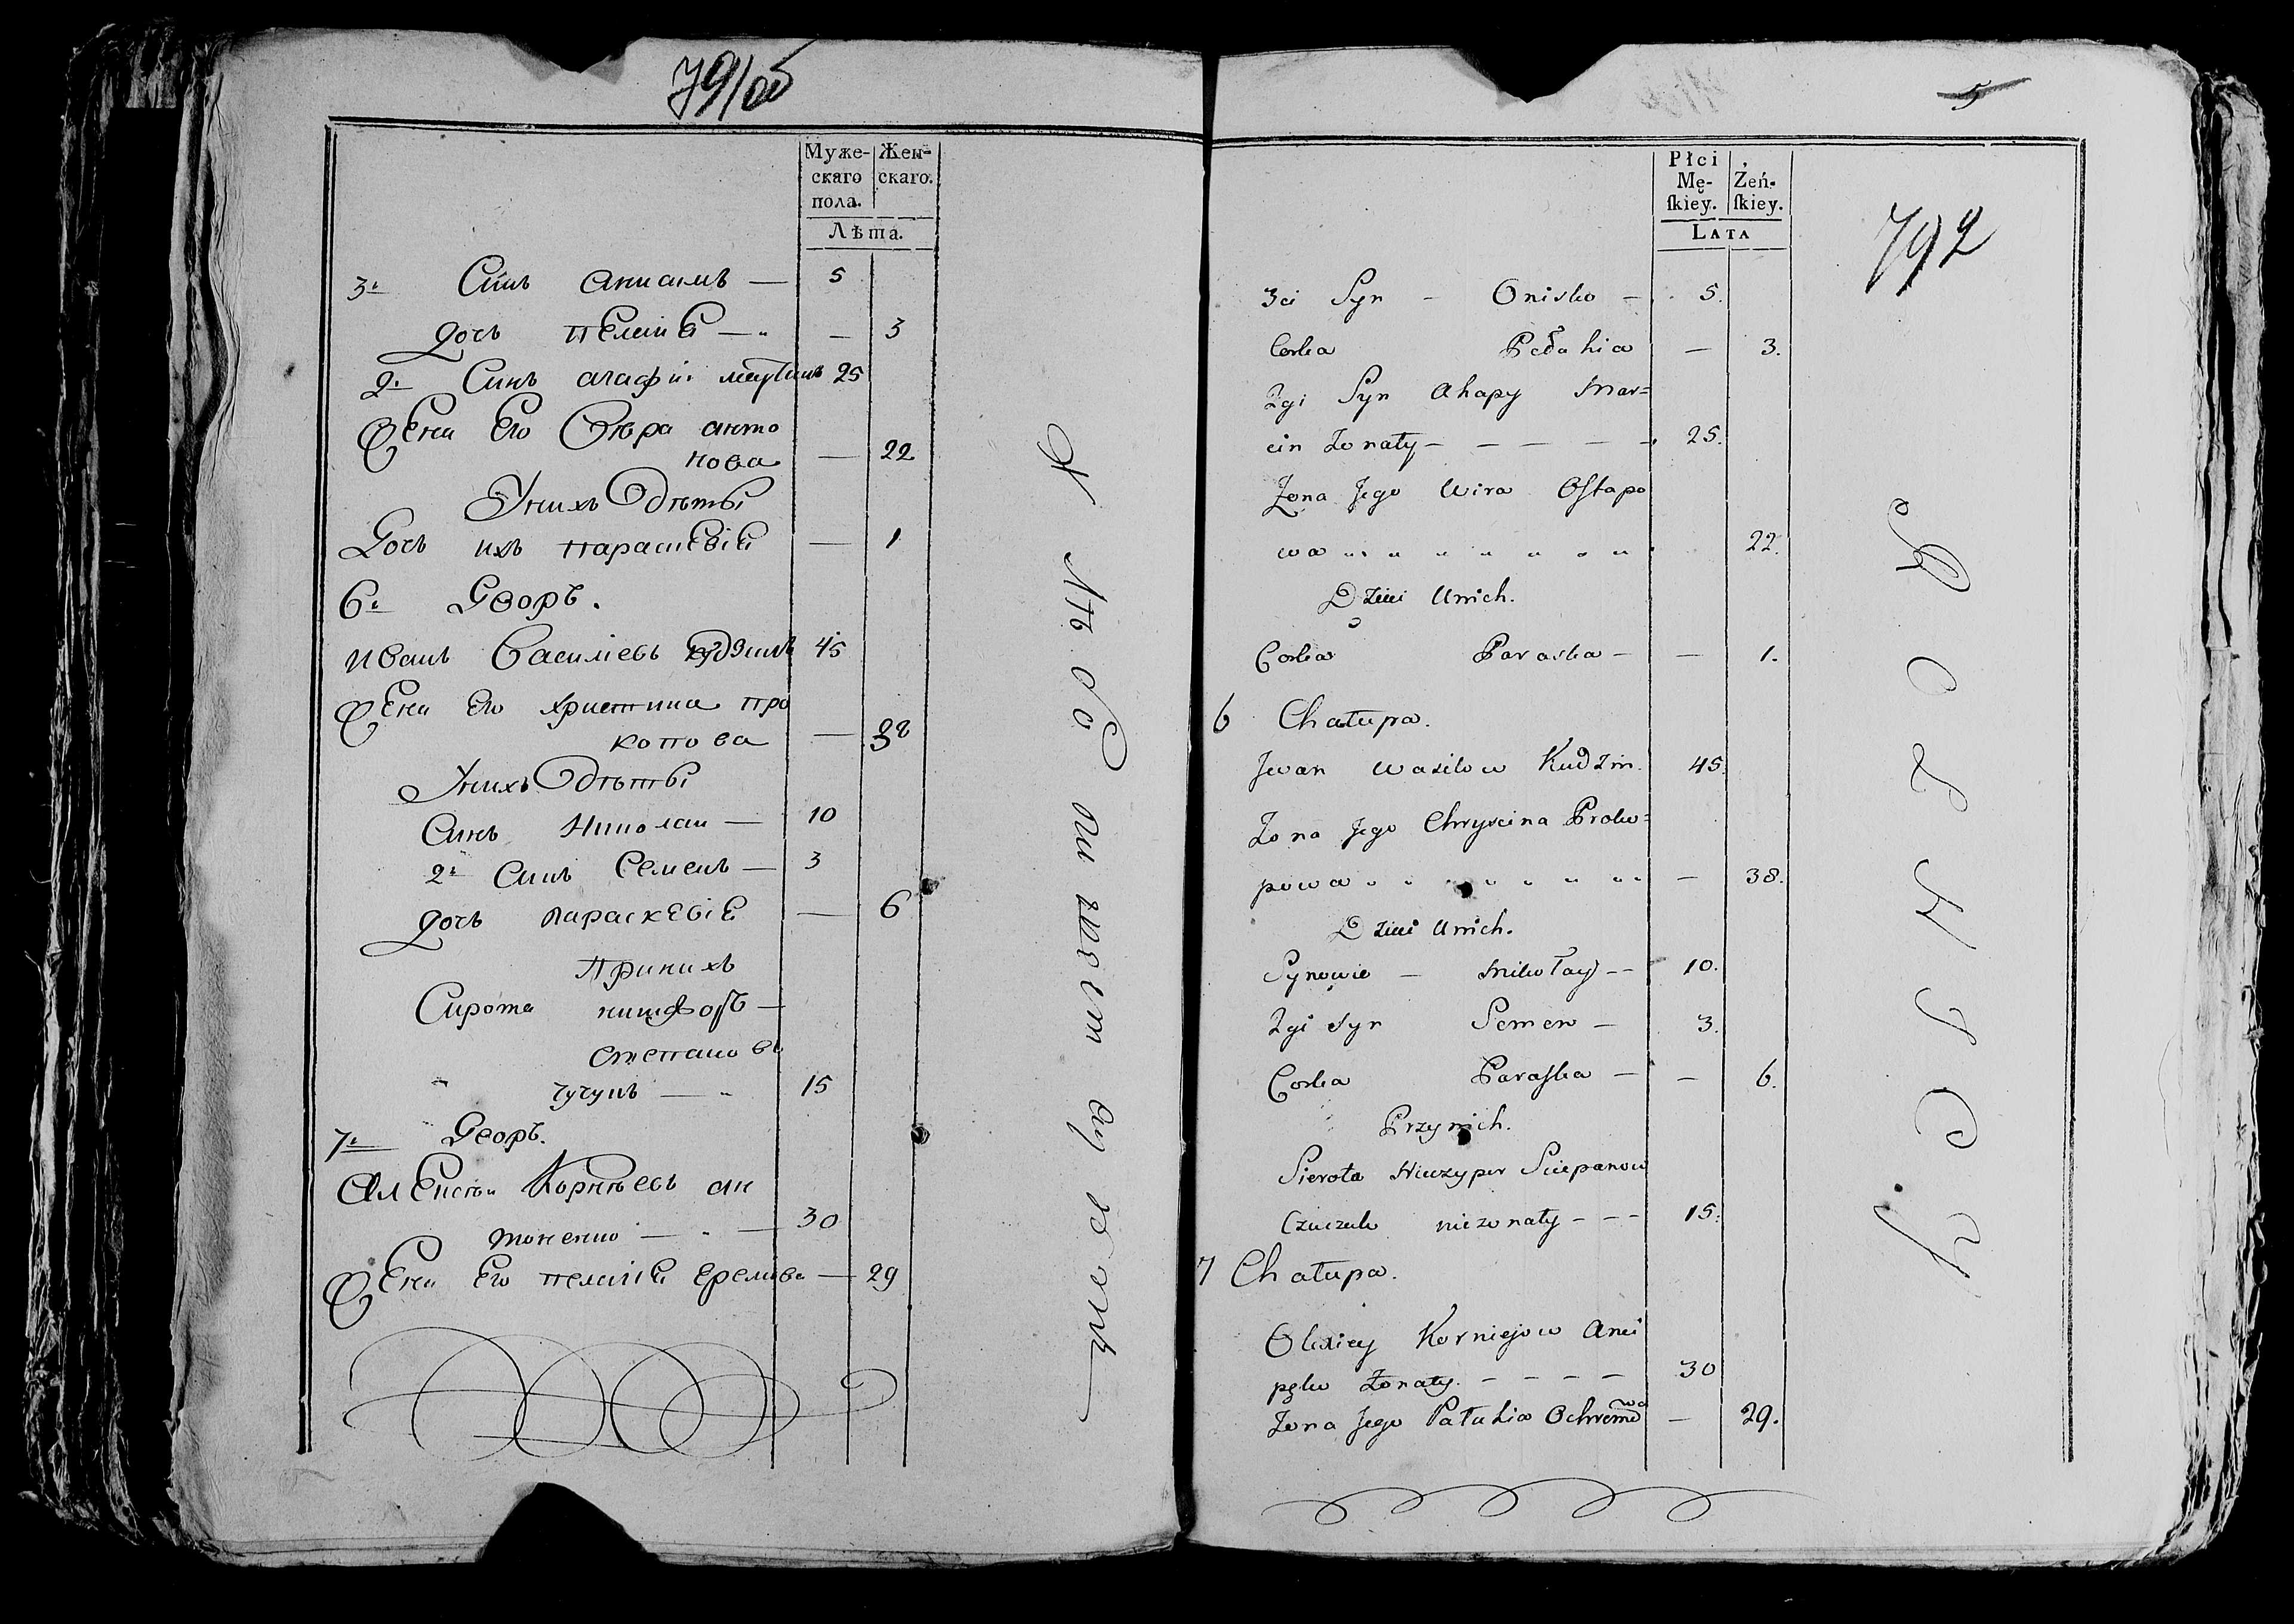 79/об
Муже- Жен-
скаго скаго.
пола.
Лѣта.
3й Сынъ Анисимъ — 5
Дочь Пелагіѣ — — 3
2й Синъ Агафій Мартинъ 25
Жена Его Вѣра Анто
нова — 22
У нихъ Дѣти
Дочь ихъ Параскѣвіѣ — 1
6й Дворъ.
Иванъ Василіевъ Кудзинъ 45
Жена Его Христина Про
копова — 38
У нихъ Дѣти
Синъ Николаи — 10
2й Синъ Семенъ — 3
Дочь Параскѣвіѣ — 6
При нихъ
Сирота Никифоръ —
Степановъ
Чучукъ — 15
7й Дворъ.
Алексѣи Корнѣевъ Ан
— 30
Жена Его Пелагіѣ — 29
5
Płci Żeń-
Mę- skiey.
skiey.
LATA
792
3ci Syn - Onisko - 5.
Corka Pałahia — 3.
2gi Syn Ahapy Mar=
cin Żonaty - - - - - 25.
Żona Jego Wira Ostapo
wa 22.
Dzieci Unich.
Corka Paraska - — 1.
6 Chałupa.
Jwan Wasilow Kudzin. 45.
Żona Jego Chryscina Proko=
powa — 38.
Dzieci Unich.
Synowie - Mikołay - - 10.
2gi Syn Semen - 3.
Corka Paraska - — 6.
Przynich.
Sierota Niczypor Sciepanow
Czuczuk nieżonaty - - - 15.
7 Chałupa.
Olexiey Korniejow Anci
pęko Żonaty. - - - - 30
Żona Jego Pałuhia Ochremo
wa — 29.